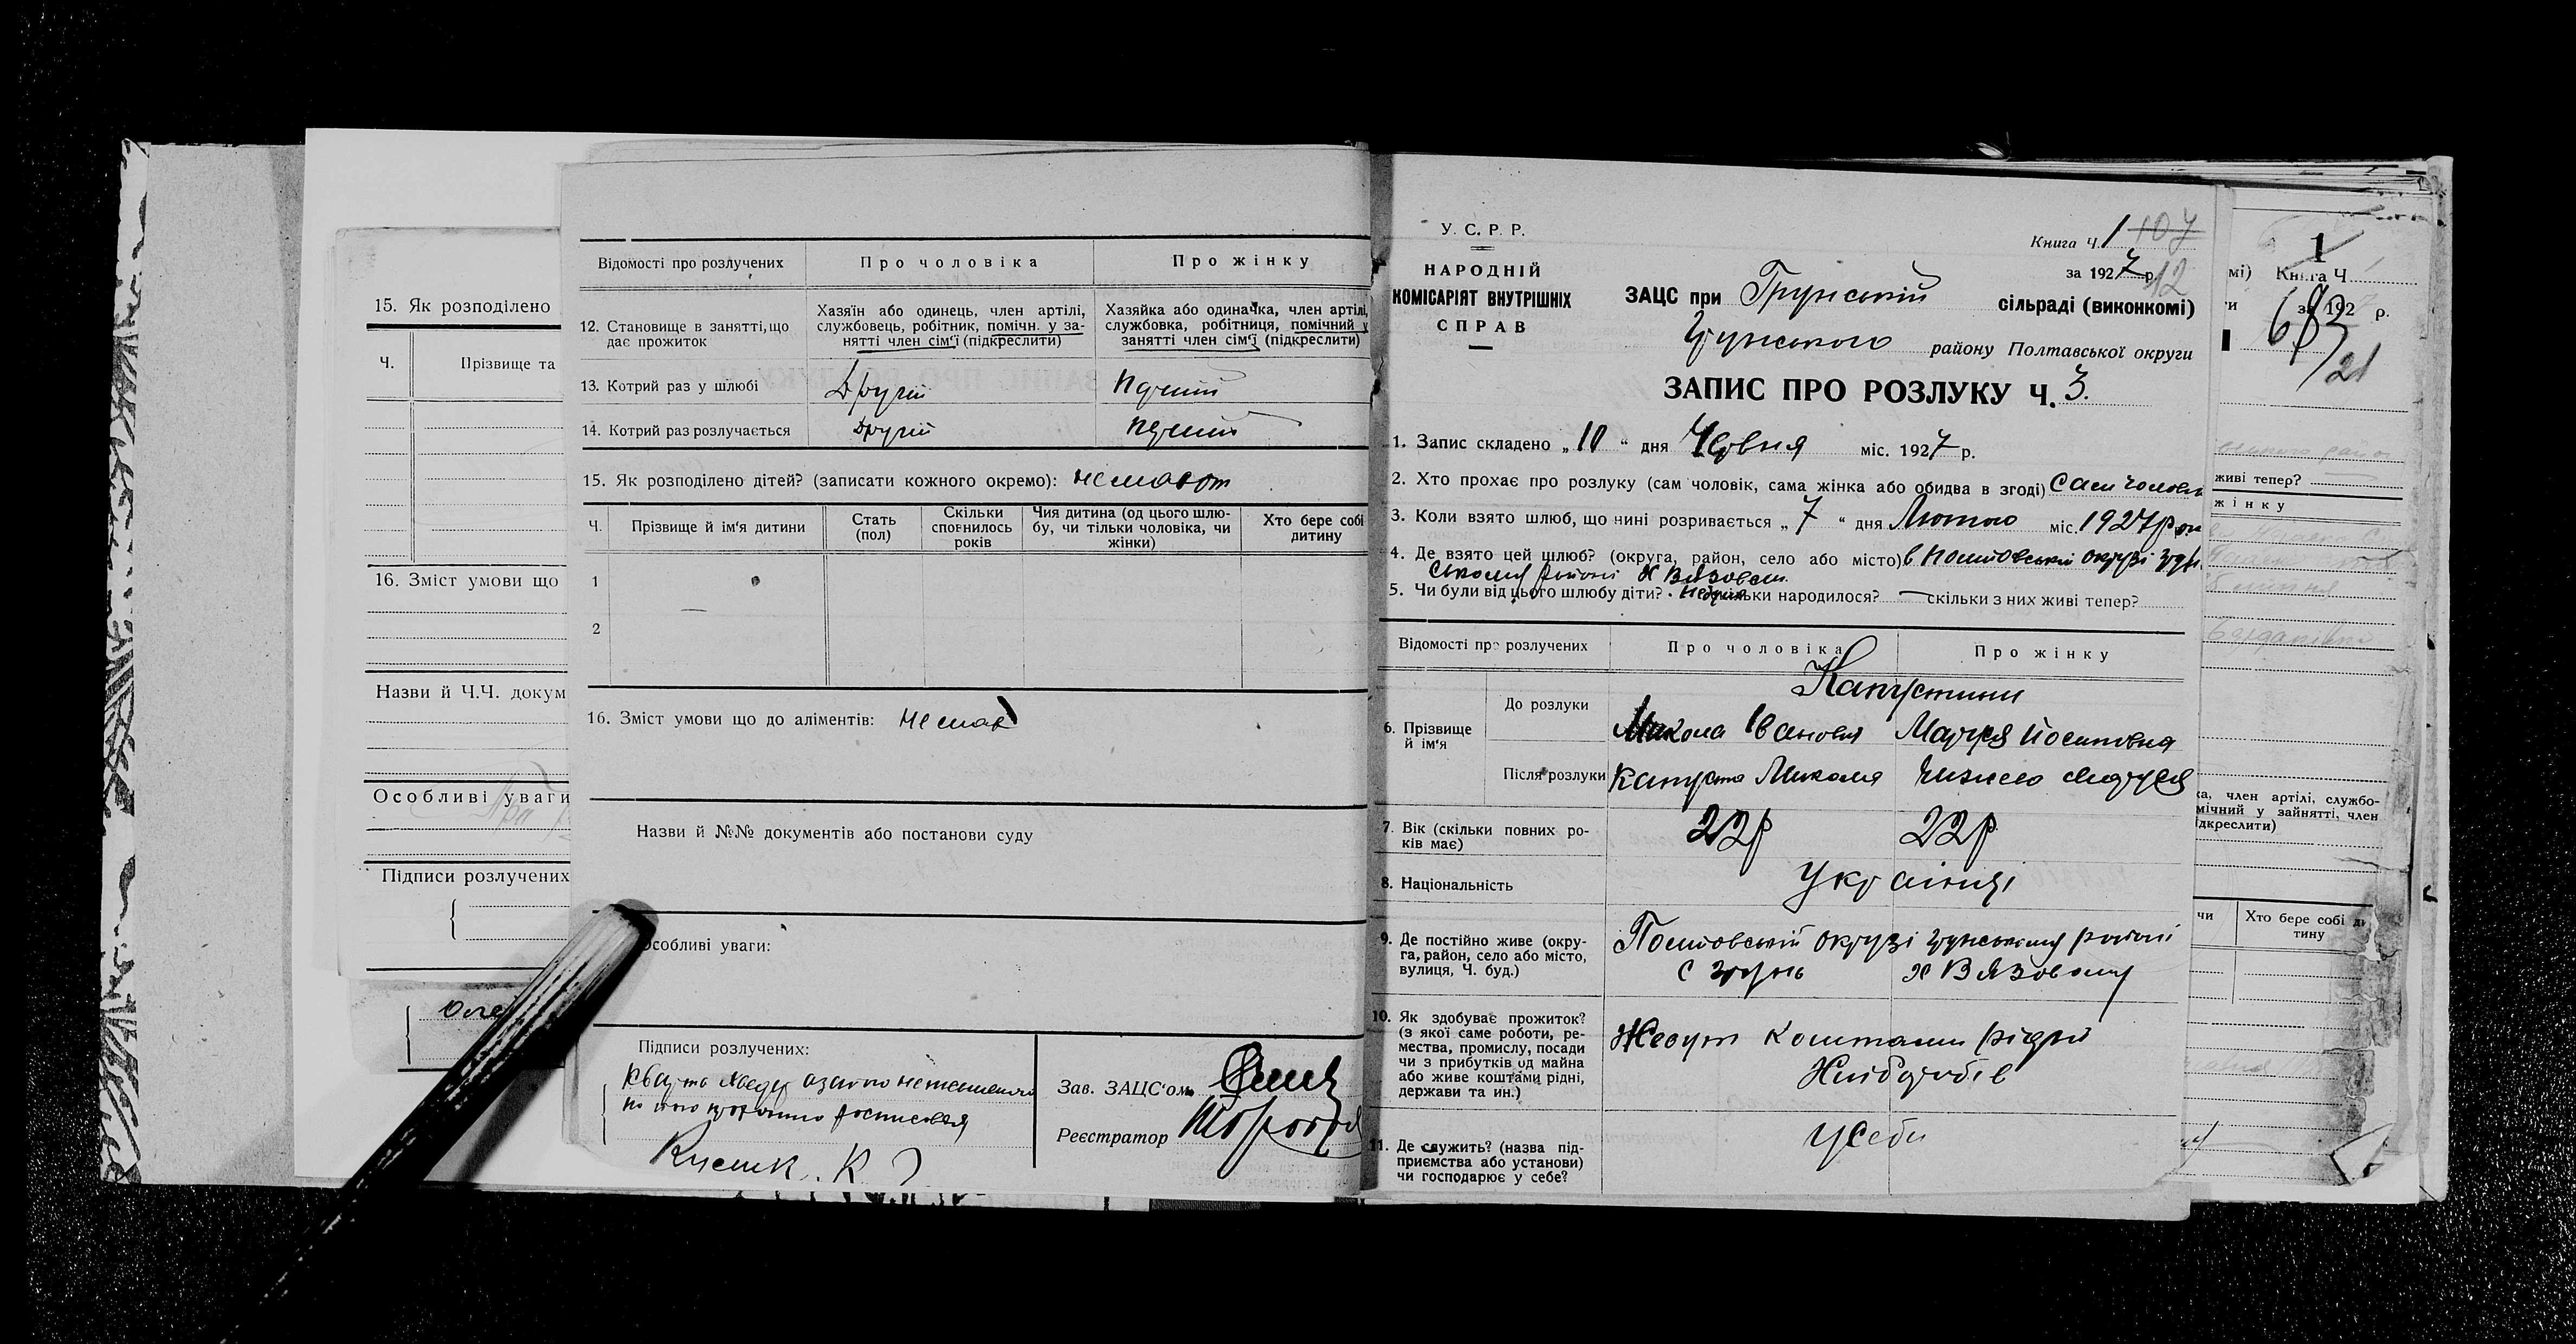 15. Як розподілено
Ч.
Прізвище та
16. Зміст умови що
Назви й Ч.Ч. докум
Особливі уваги
Підписи розлучених
Відомості про розлучених
Про чоловіка
Про жінку
12. Становище в занятті, що
дає прожиток
Хазяїн або одинець, член артілі,
службовець, робітник, помічн. у за-
нятті член сім'ї (підкреслити)
Хазяйка або одиначка, член артілі,
службовка, робітниця, помічний у
занятті член сім'ї (підкреслити)
13. Котрий раз у шлюбі
Другій
14. Котрий раз розлучається
Другій
15. Як розподілено дітей? (записати кожного окремо):
Ч.
Прізвище й ім'я дитини
Стать
(пол)
Скільки
сповнилось
років
Чия дитина (од цього шлю-
бу, чи тільки чоловіка, чи
жінки)
Хто бере собі
дитину
1
2
16. Зміст умови що до аліментів: немає
Назви й №№ документів або постанови суду
Особливі уваги:
Підписи розлучених:
Зав. ЗАЦС'ом
Реєстратор
У. С. Р. Р.
НАРОДНІЙ
КОМІСАРІЯТ ВНУТРІШНІХ
СПРАВ
Книга Ч. 1 107
за 1927 р. 12
ЗАЦС при Грунській сільраді (виконкомі)
Грунського району Полтавської округи
ЗАПИС ПРО РОЗЛУКУ Ч. 3.
1. Запис складено „10“ дня Червня міс. 1927 р.
2. Хто прохає про розлуку (сам чоловік, сама жінка або обидва в згоді) Сам чоловік
3. Коли взято шлюб, що нині розривається „7“ дня Лютого міс. 1927
4. Де взято цей шлюб? (округа, район, село або місто) в Полтовській окрузі Грун
ському районі х Вязовом
5. Чи були від цього шлюбу діти? скільки народилося? — скільки з них живі тепер?
Відомості про розлучених
Про чоловіка
Про жінку
6. Прізвище
й ім'я
До розлуки
Капустини
Микола Іванович
Мотря Йосиповна
Після розлуки
Капуста Микола
Мотря
7. Вік (скільки повних ро-
ків має)
22р
22р
8. Національність
Українці
9. Де постійно живе (окру-
га, район, село або місто,
вулиця, Ч. буд.)
Полтовській окрузі Грунському районі
с Грунь
х Вязовому
10. Як здобуває прожиток?
(з якої саме роботи, ре-
мества, промислу, посади
чи з прибутків од майна
або живе коштами рідні,
держави та ин.)
Живут коштами рідні
Хліборобів
11. Де служить? (назва під-
приємства або установи)
чи господарює у себе?
у себе
мі) Книга Ч.
1
за 192 р.
683
21
живі тепер?
жінку
ка, член артілі, службо-
мічний у зайнятті, член
ідкреслити)
чи
Хто бере собі ди
тину